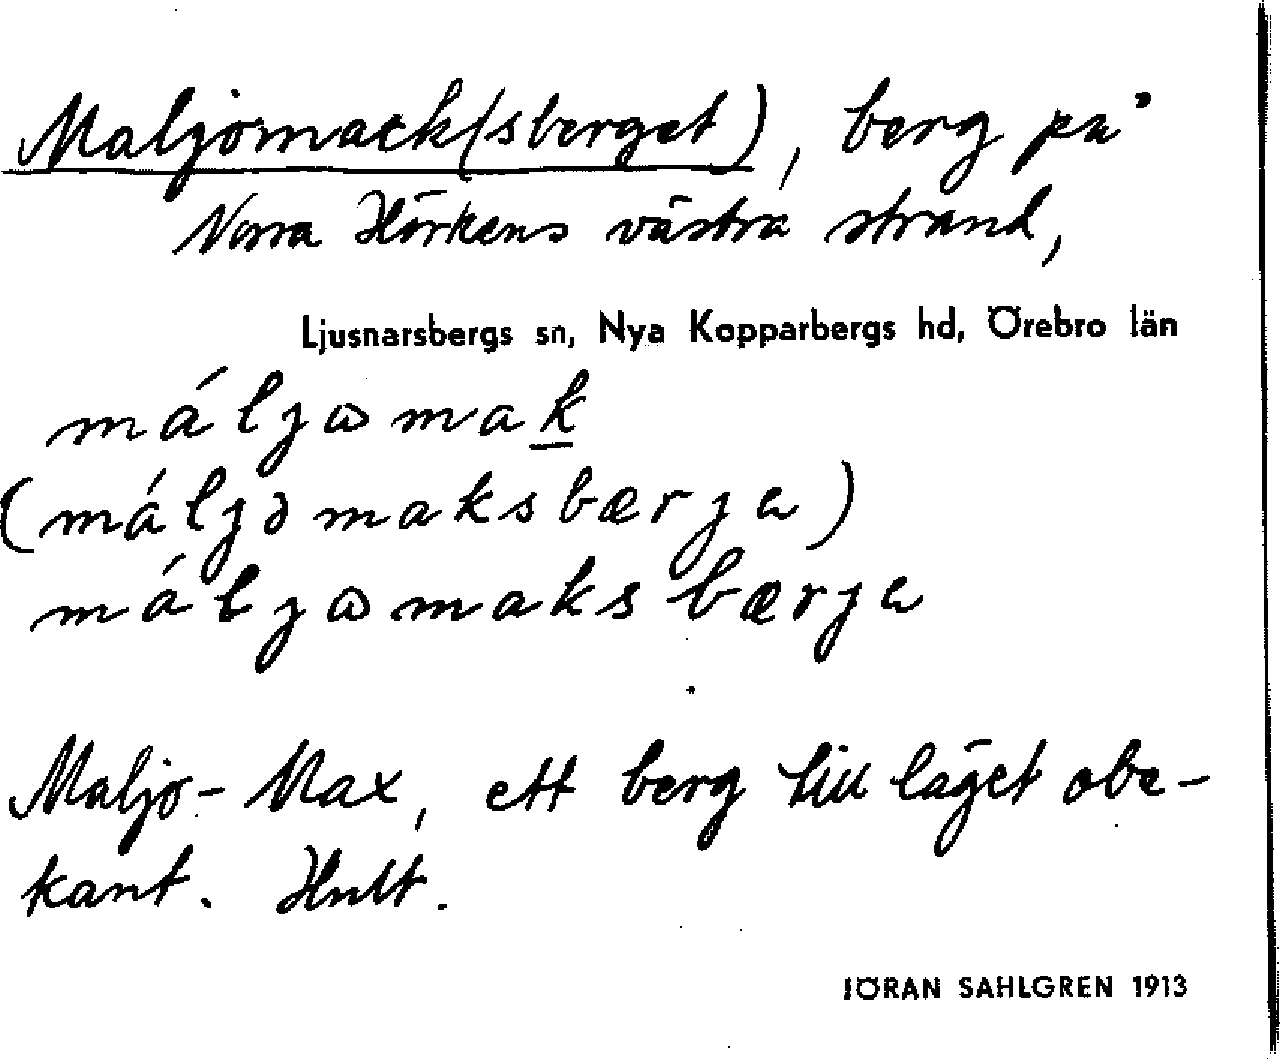 Maljomack(sberget), berg på
Norra Hörkens västra strand,
Ljusnarsbergs sn, Nya Kopparbergs hd, Örebro län
máljɷmak
(máljəmaksbærja)
máljɷmaksbærja
Maljo-Max, ett berg till läget obe-
kant. Hult.
JÖRAN SAHLGREN 1913